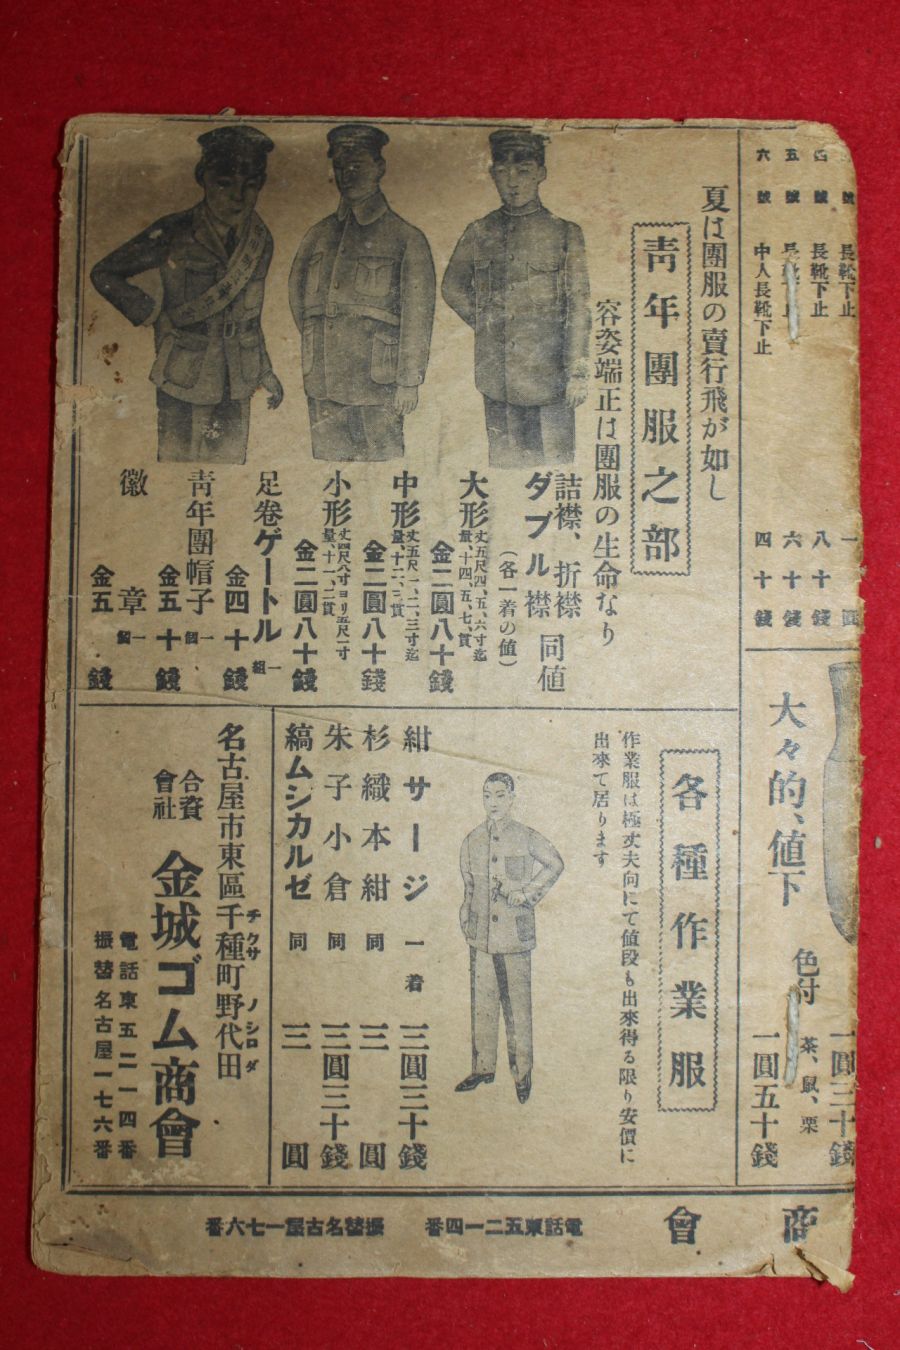 號
長靴下止
一圓
四號
長靴下止
八十錢
五號
長靴下止
六十錢
六號
中人長靴下止
四十錢
大々的、値下
色付
茶、鼠、栗
一圓三十錢
一圓五十錢
夏は團服の賣行飛が如し
靑年團服之部
容姿端正は團服の生命なり
詰襟、折襟
ダブル襟
同値
(各一着の値)
大形
丈五尺四、五、六寸迄
量、十四、五、七、貫
金二圓八十錢
中形
丈五尺一、二、三寸迄
量、十二、三貫
金二圓八十錢
小形
丈四尺八寸ヨリ五尺一寸
量、十一、二貫
金二圓八十錢
足卷ゲートル
一組
金四十錢
靑年團帽子
一個
金五十錢
徽章
一個
金五錢
各種作業服
作業服は極丈夫向にて値段も出來得る限り安價に
出來て居ります
紺サージ 一着 三圓三十錢
杉織本紺 同 三圓
朱子小倉 同 三圓三十錢
縞ムシカルゼ 同 三圓
名古屋市東區千種町野代田
チクサ ノシロダ
合資會社
金城ゴム商會
電話東五二一四番
振替名古屋一七六番
商會
電話東五二一四番
振替名古屋一七六番